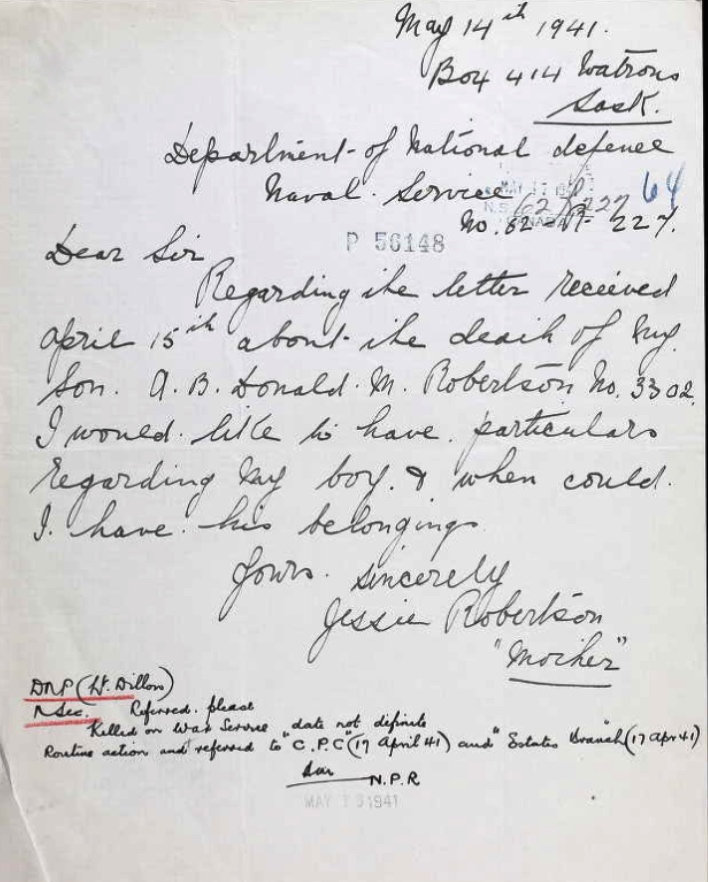 May 14th 1941.
Box 414 Watrous
Sask.
Department of National defence
Naval Service
64
No. 62-R-227.
P 56148
Dear Sir
Regarding the letter received
April 15th about the death of my
Son. A.B. Donald. M. Robertson No. 3302
I would like to have particulars
regarding my boy. & when could
I have his belongings
Yours. sincerely
Jessie Robertson
"Mother"
DNP (Lt. Dillon)
N Sec. Referred. please
Killed on War Service "date not definite
Routine action and referred to "C.P.C" (17 April 41) and "Estates Branch (17 Apr 41)
N.P.R